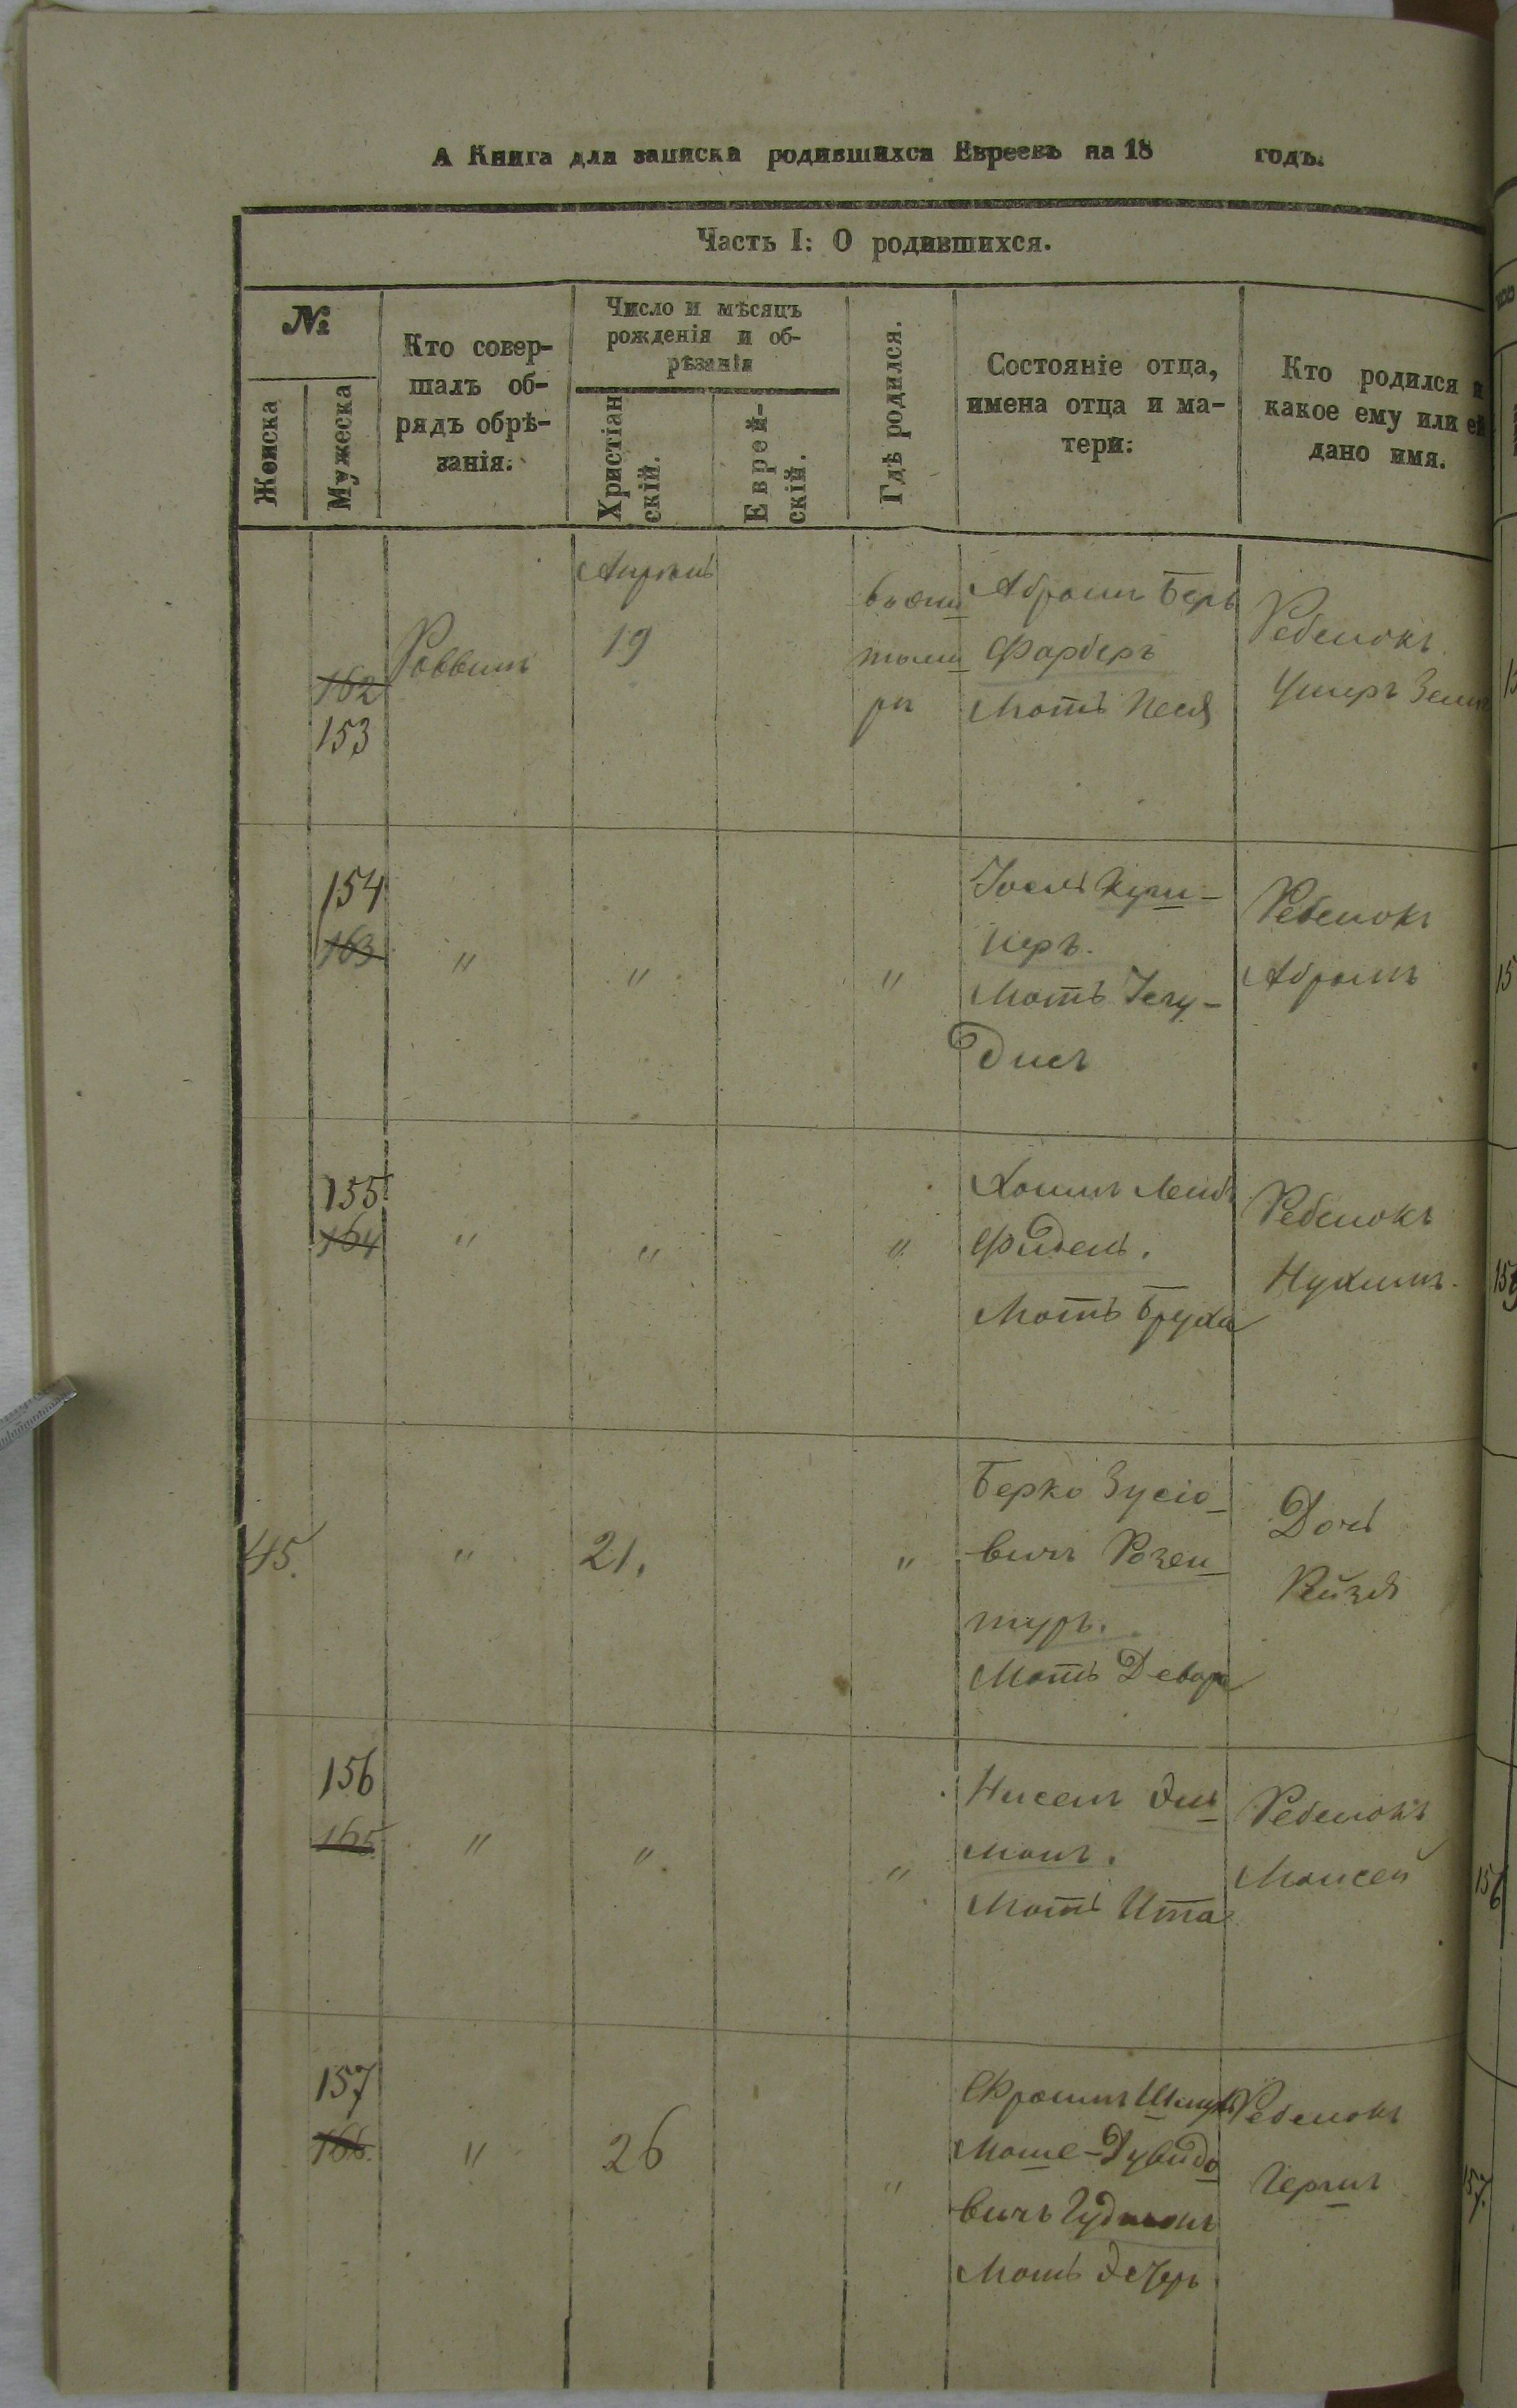 А Книга для записки родившихся Евреевъ на 18 годъ.
Часть I: О родившихся.
№
Женска
Мужеска
Кто совер-
шалъ об-
рядъ обрѣ-
занія.
Число и мѣсяцъ
рожденія и об-
рѣзанія
Христіан
скій.
Еврей-
скій.
Гдѣ родился.
Состояніе отца,
имена отца и ма-
тери:
Кто родился и
какое ему или ей
дано имя.
162
153
Раввинъ
Апрѣль
19
въ жи
томи
рѣ
Абрамъ Беръ
Фарберъ
Мать Песя
Ребенокъ
Ушеръ
154
163
"
"
"
Іосль
неръ.
Мать Іегу-
дисъ
Ребенокъ
Абрамъ
155
164
"
"
"
Хаимъ Лейб
Фидель.
Мать Бруха
Ребенокъ
Нухимъ.
45.
"
21.
"
Берко Зусіо-
вичъ Розен
туръ.
Мать Двора
Дочь
Рейзя
156
165
"
"
"
Нисенъ
манъ.
Мать Ита
Ребенокъ
Моисей
157
166.
"
26
"
Фроимъ
Моше-Дувидо
вичъ Гудманъ
Мать
Ребенокъ